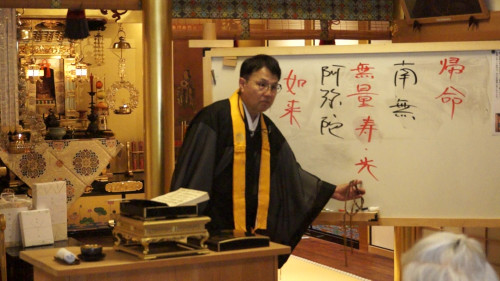 帰命
南無
無量寿・光
阿弥陀
如来